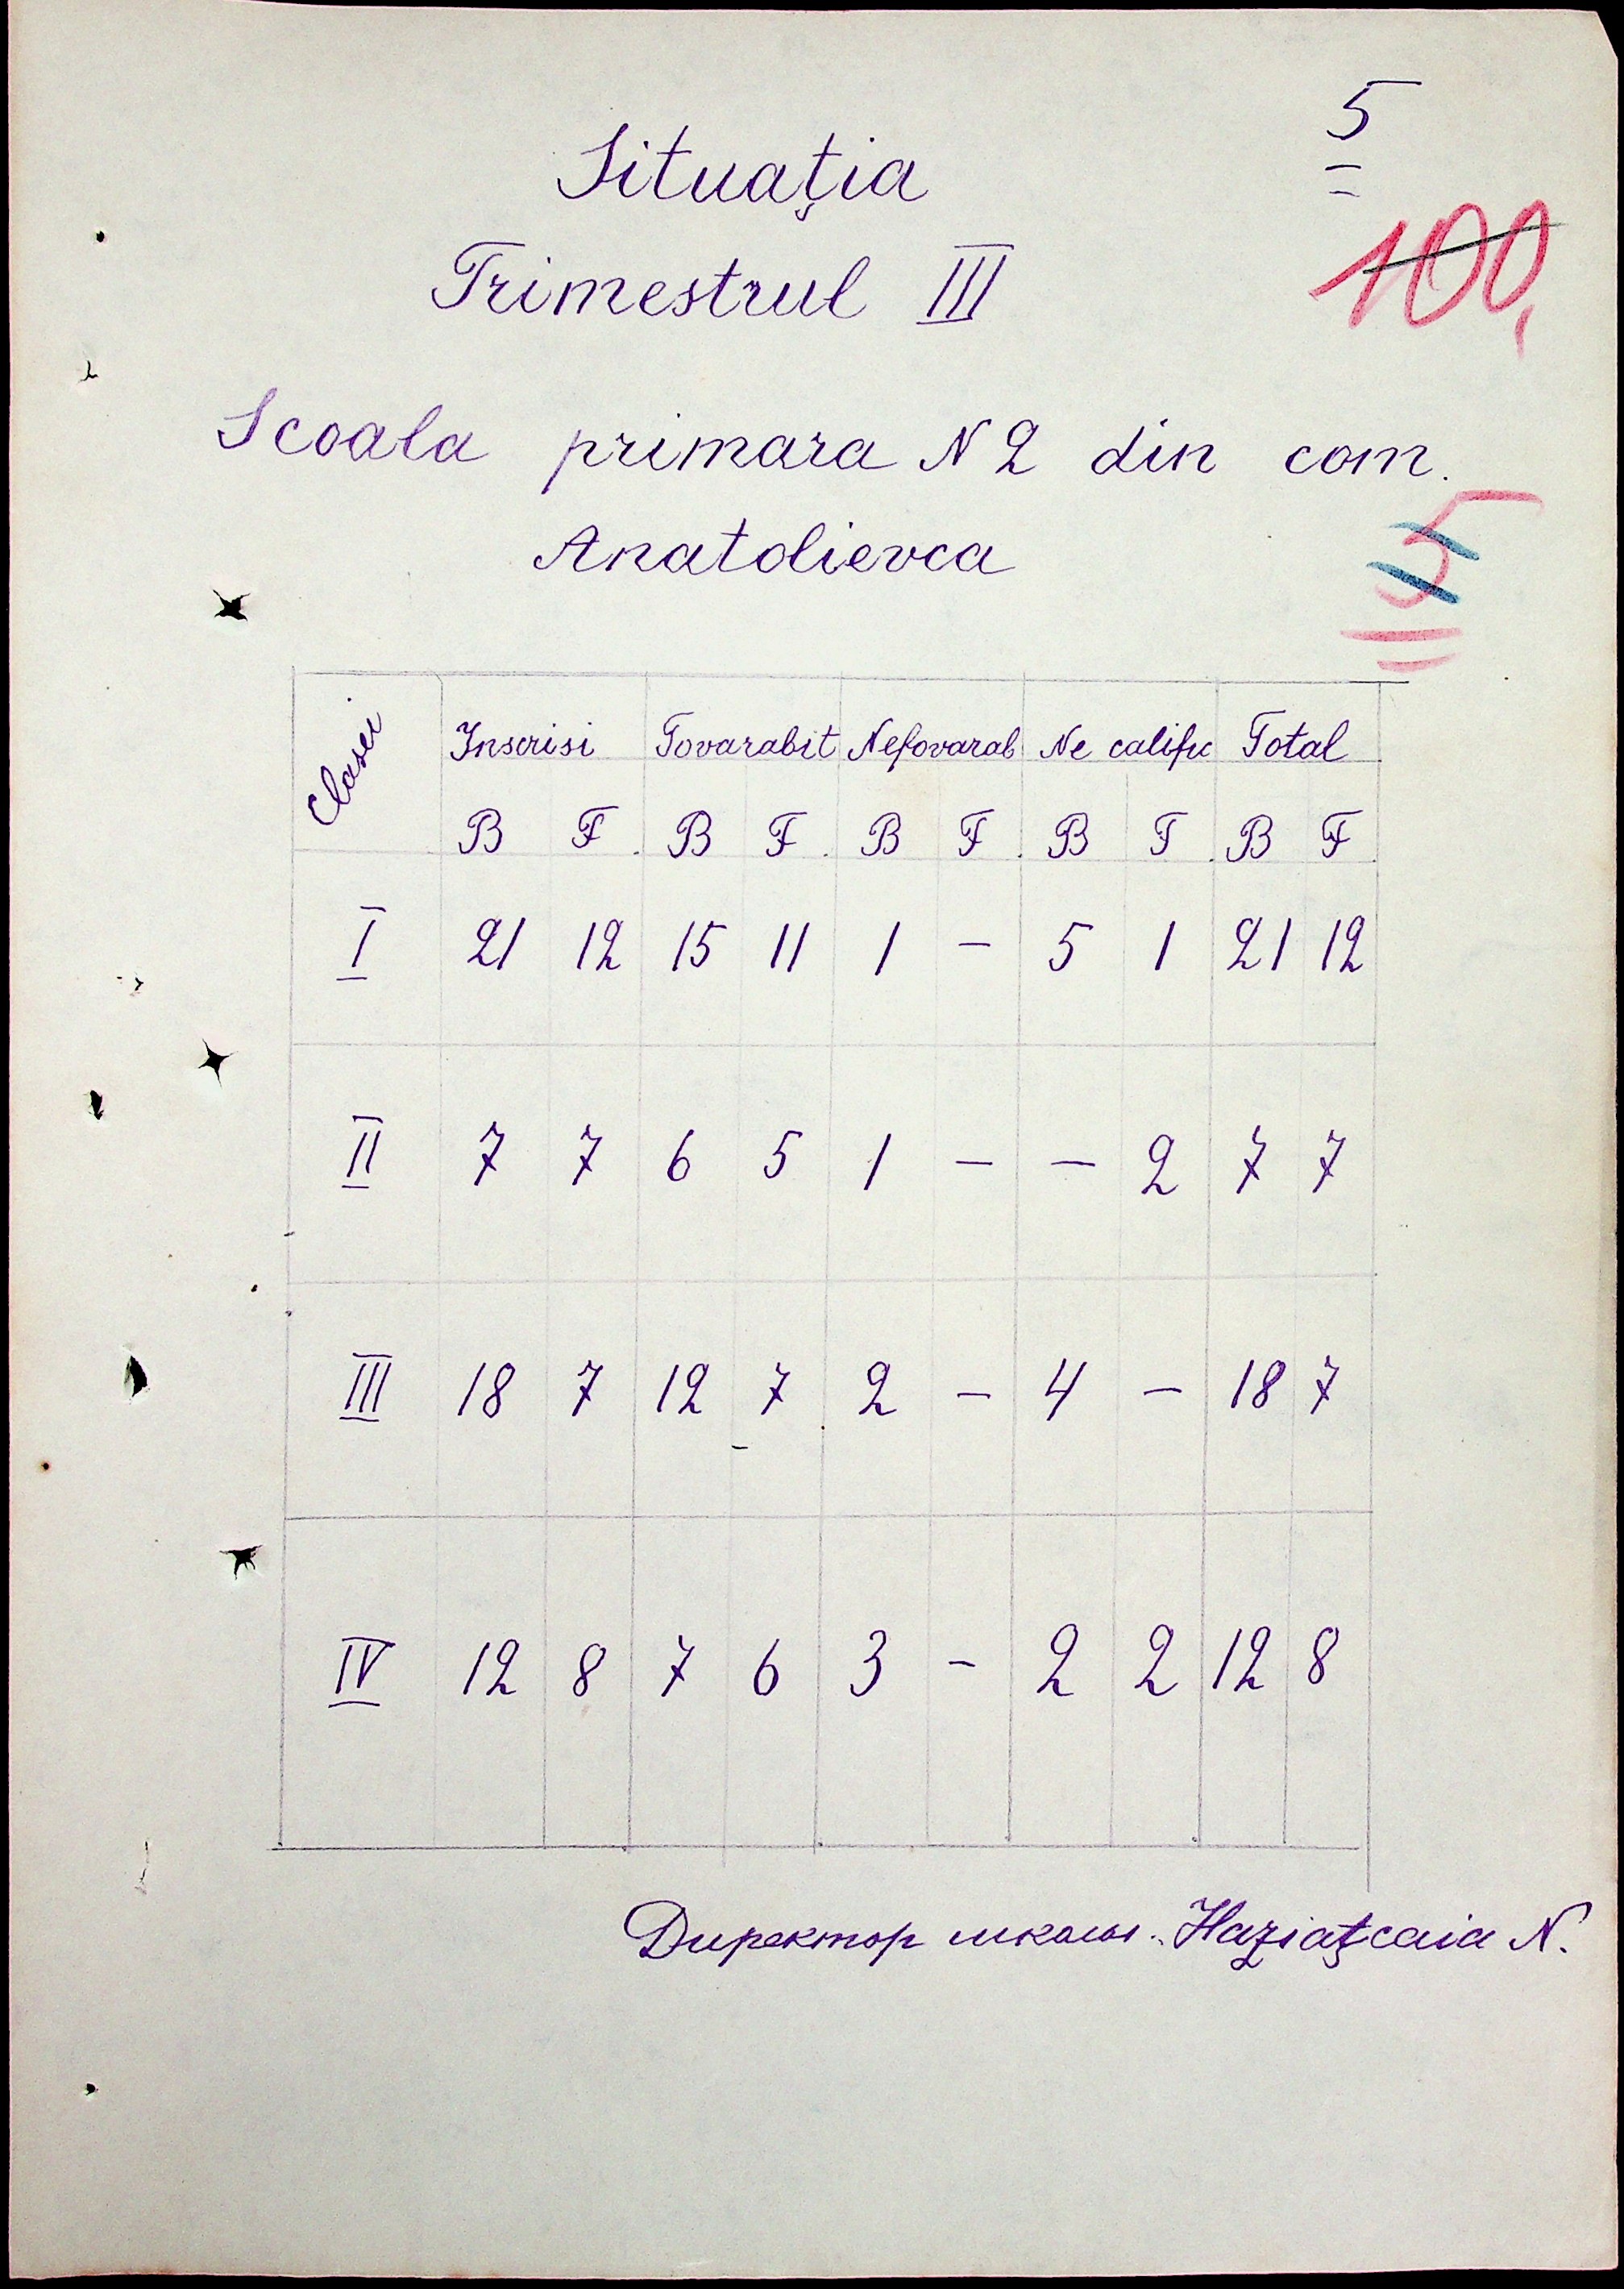 5
Situația
Trimestrul III
100,
Scoala primara N 2 din com.
Anatolievca
5
Clasei Inscrisi Fovarabit Nefovarab Ne califc Total
B F B F B F B F B F
I 21 12 15 11 1 - 5 1 21 12
II 7 7 6 5 1 - - 2 7 7
III 18 7 12 7 2 - 4 - 18 7
IV 12 8 7 6 3 - 2 2 12 8
Директор школы. Haziațcaia N.